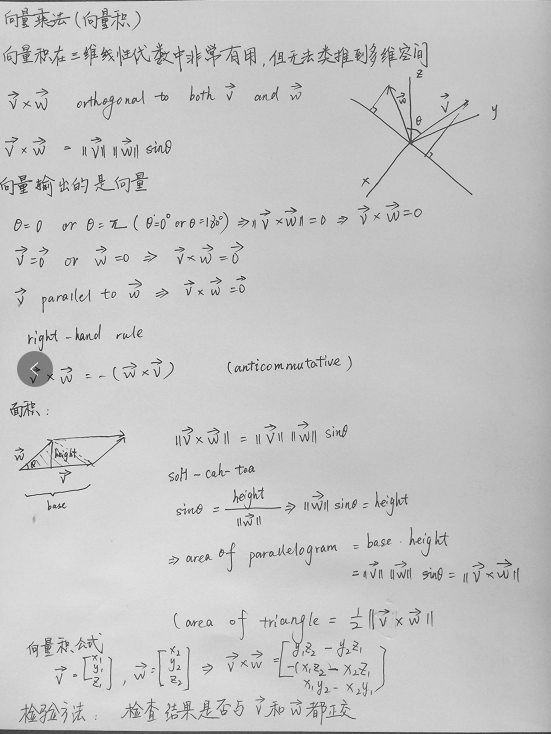 向量乘法(向量积)
向量积在三维线性代数中非常有用,但无法类推到多维空间
v⃗ × w⃗ orthogonal to both v⃗ and w⃗
v⃗ × w⃗ = ||v⃗|| ||w⃗|| sinθ
z
w⃗
v⃗
θ
y
x
向量输出的是向量
θ=0 or θ=π (θ=0° or θ=180°) ⇒ ||v⃗×w⃗||=0 ⇒ v⃗×w⃗=0
v⃗=0⃗ or w⃗=0 ⇒ v⃗×w⃗=0⃗
v⃗ parallel to w⃗ ⇒ v⃗×w⃗=0⃗
right-hand rule
v⃗ × w⃗ = -(w⃗ × v⃗) (anticommutative)
面积:
w⃗
θ
height
v⃗
base
||v⃗×w⃗|| = ||v⃗|| ||w⃗|| sinθ
soH-cah-toa
sinθ = height/||w⃗|| ⇒ ||w⃗|| sinθ = height
⇒ area of parallelogram = base · height
= ||v⃗|| ||w⃗|| sinθ = ||v⃗×w⃗||
(area of triangle = 1/2 ||v⃗ × w⃗||
向量积公式
v⃗ = [x₁ y₁ z₁], w⃗ = [x₂ y₂ z₂] ⇒ v⃗×w⃗ = [y₁z₂ - y₂z₁ -(x₁z₂ - x₂z₁) x₁y₂ - x₂y₁]
检验方法: 检查结果是否与 v⃗ 和 w⃗ 都正交